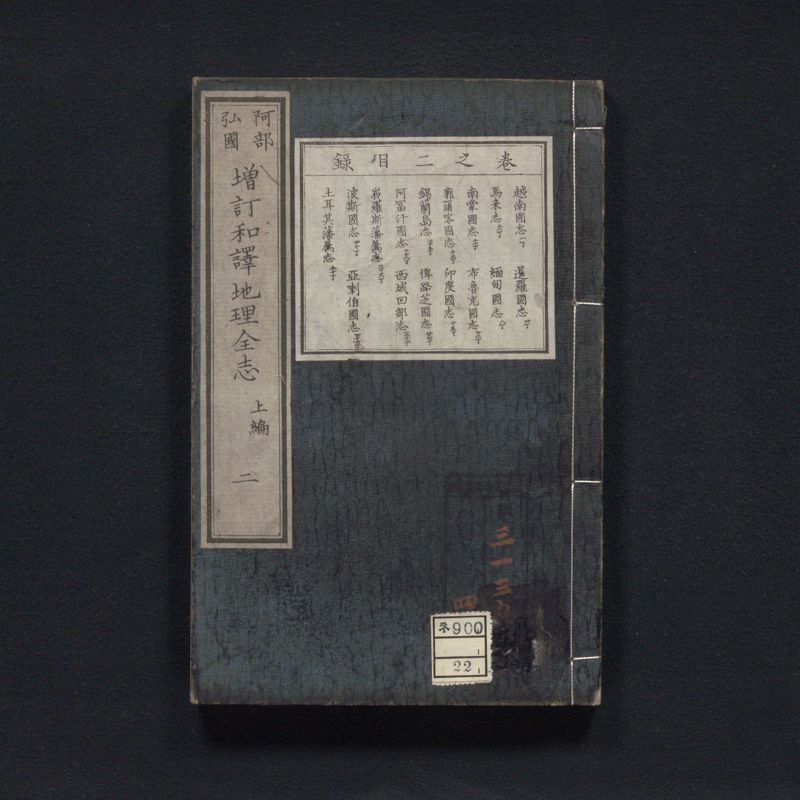 阿部
弘國
増訂和譯地理全志
上編
二
卷之二目録
越南國志 暹羅國志
馬来志 緬甸國志
南掌國志 布魯克國志
廓爾喀國志 印度國志
錫蘭島志 俾路芝國志
阿富汗國志 西域回部志
峩羅斯藩属志
波斯國志 亞剌伯國志
土耳其藩属志
三一三
四
ネ900
22